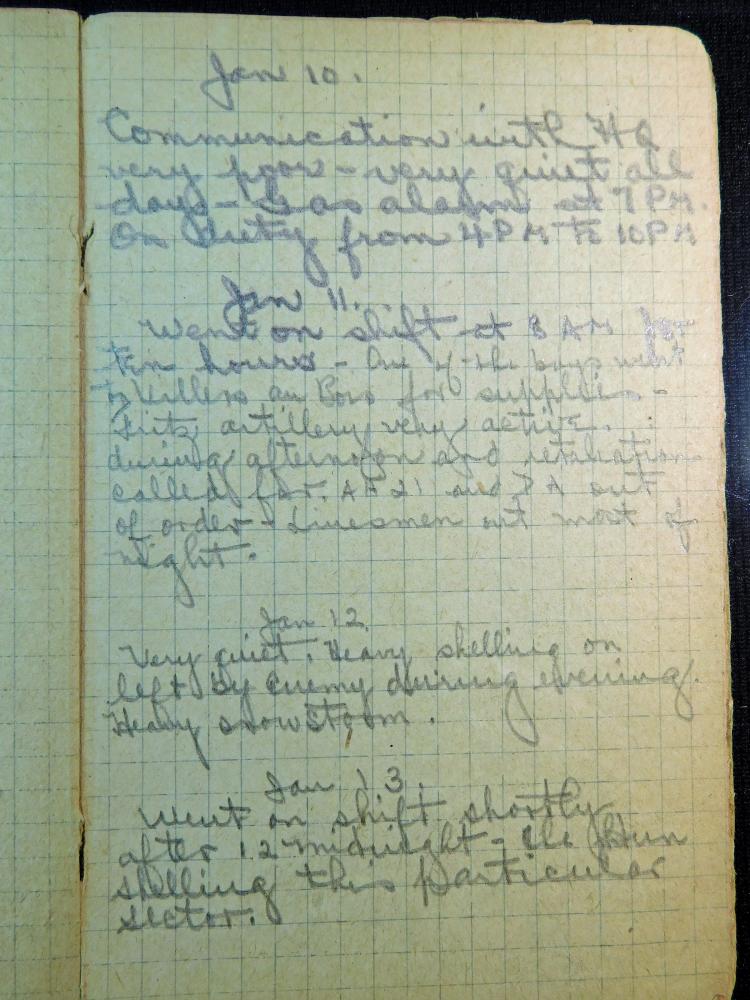 Jan 10.
Communication with HQ
very poor - very quiet all
day - Gas alarm at 7 PM.
On duty from 4 PM to 10 PM
Jan 11.
Went on shift at 8 AM for
ten hours - One of the boys went
to Villers au Bois for supplies -
Fritz artillery very active.
during afternoon and retaliation
called for. and out
of order - Linesmen out most of
night.
Jan 12.
Very quiet. Heavy shelling on
left by Enemy during evening.
Heavy snowstorm.
Jan 13.
Went on shift shortly
after 12 midnight - the Hun
shelling this particular
sector.